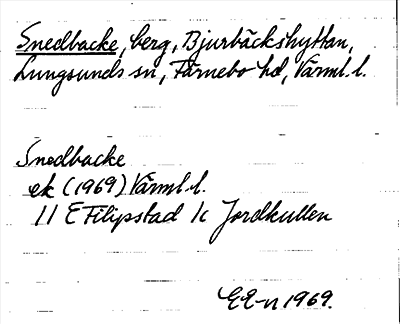 Snedbacke, berg, Bjurbäckshyttan,
Lungsunds sn, Färnebo hd, Värml. l.
Snedbacke
ek (1969) Värml. l.
11 E Filipstad 1c Jordkullen
EE-n 1969.